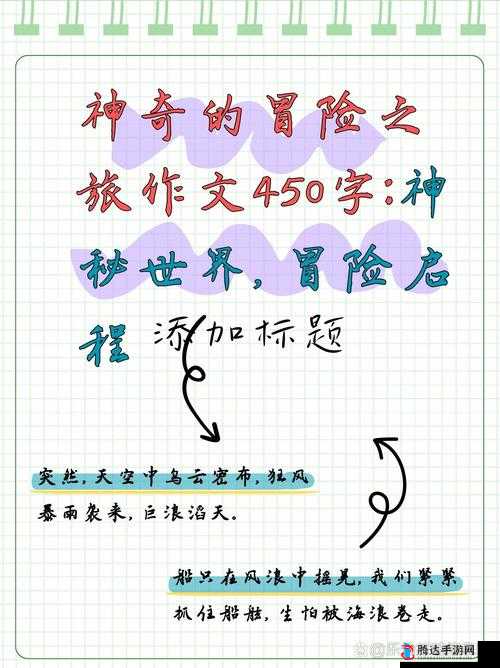 神奇的冒险之
旅作文450字:神
秘世界,冒险启
程 添加标题
突然,天空中乌云密布,狂风
暴雨袭来,巨浪滔天。
船只在风浪中摇晃,我们紧紧
抓住船舷,生怕被海浪卷走。
腾达手游网